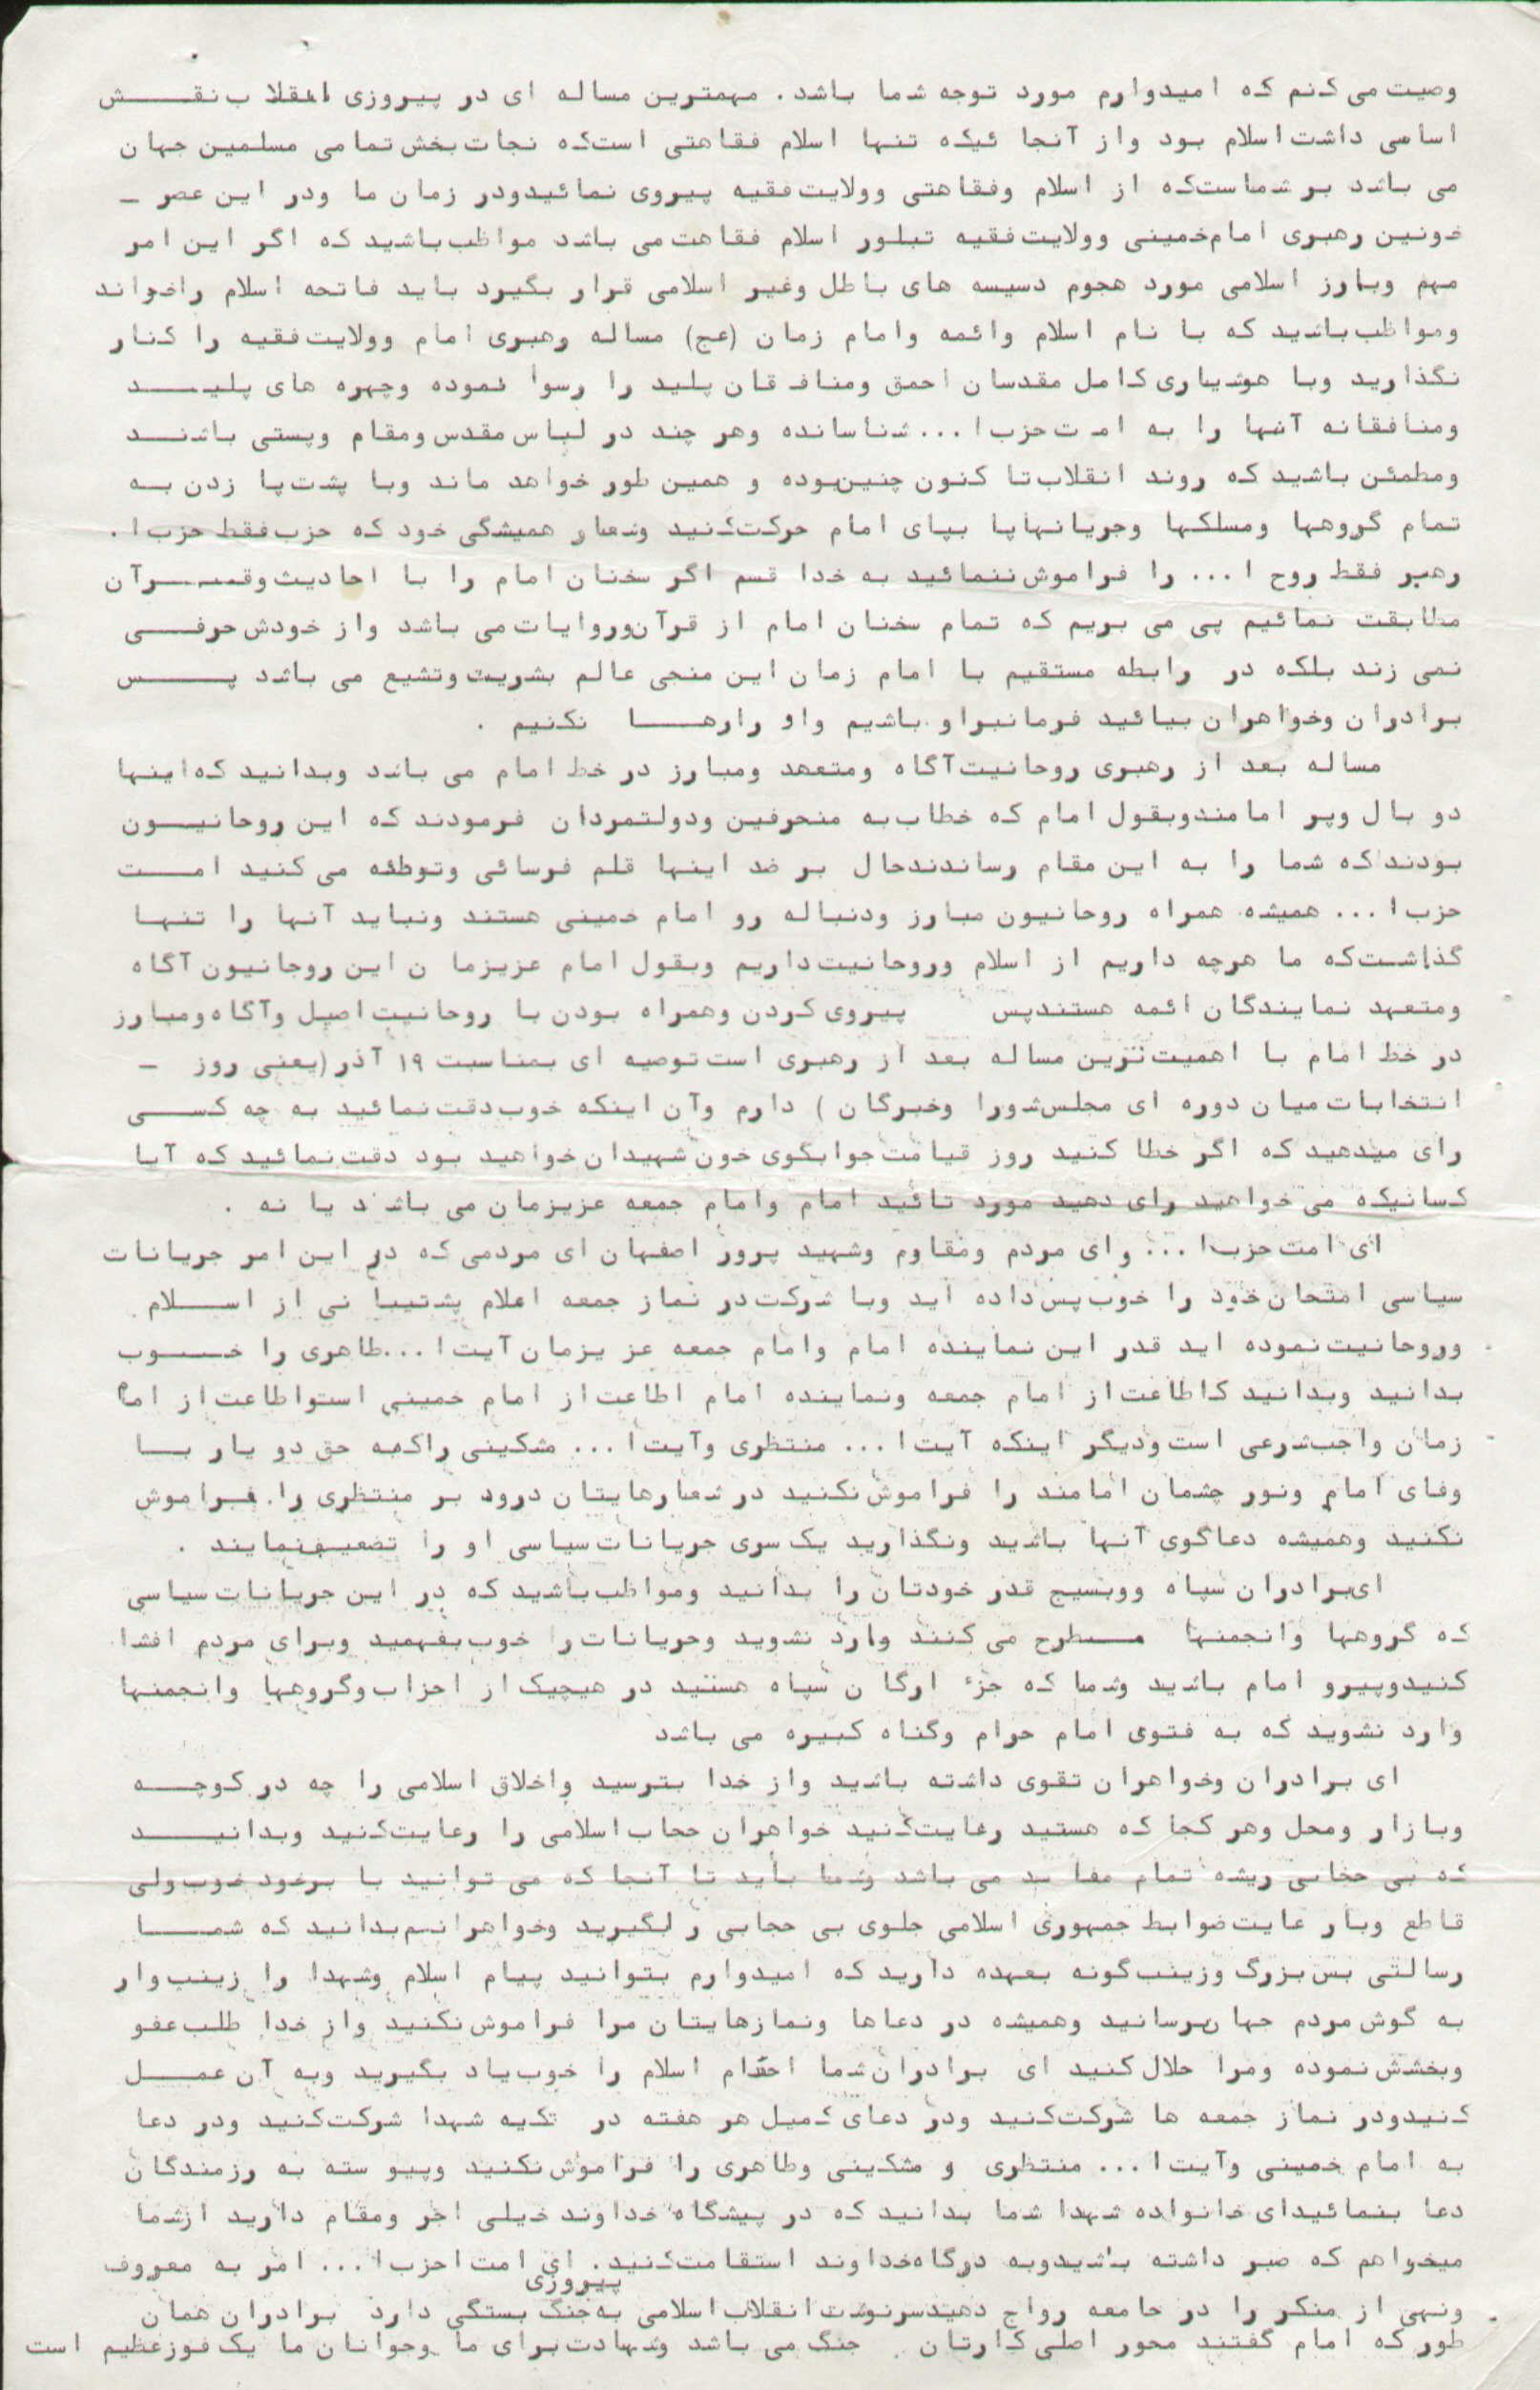 وصیت می کنم که امیدوارم مورد توجه شما باشد . مهمترین مساله ای در پیروزی انقلاب نقـــــش
اساسی داشت اسلام بود واز آنجا ئیکه تنها اسلام فقاهتی است که نجات بخش تمامی مسلمین جهان
می باشد بر شماست که از اسلام وفقاهتی وولایت فقیه پیروی نمائید ودر زمان ما ودر این عصر ـ
خونین رهبری امام خمینی وولایت فقیه تبلور اسلام فقاهت می باشد مواظب باشید که اگر این امر
مهم وبارز اسلامی مورد هجوم دسیسه های باطل وغیر اسلامی قرار بگیرد باید فاتحه اسلام راخواند
ومواظب باشید که با نام اسلام وائمه وامام زمان (عج) مساله رهبری امام وولایت فقیه را کنار
نگذارید وبا هوشیاری کامل مقدسان احمق ومنافقان پلید را رسوا نموده وچهره های پلیـــد
ومنافقانه آنها را به امت حزب ا ... شناسانده وهر چند در لباس مقدس ومقام وپستی باشنـــد
ومطمئن باشید که روند انقلاب تا کنون چنین بوده و همین طور خواهد ماند وبا پشت پا زدن بـه
تمام گروهها ومسلکها وجریانها پا بپای امام حرکت کنید وشعار همیشگی خود که حزب فقط حزب ا .
رهبر فقط روح ا ... را فراموش ننمائید به خدا قسم اگر سخنان امام را با احادیث وقـــرآن
مطابقت نمائیم پی می بریم که تمام سخنان امام از قرآن وروایات می باشد واز خودش حرفـــی
نمی زند بلکه در رابطه مستقیم با امام زمان این منجی عالم بشریت وتشیع می باشد پـــــس
برادران وخواهران بیائید فرمانبراو باشیم واو رارهـــا نکنیم .
مساله بعد از رهبری روحانیت آگاه ومتعهد ومبارز در خط امام می باشد وبدانید که اینها
دو بال وپر امامند وبقول امام که خطاب به منحرفین ودولتمردان فرمودند که این روحانیـــون
بودند که شما را به این مقام رساندند حال بر ضد اینها قلم فرسائی وتوطئه می کنید امـــت
حزب ا ... همیشه همراه روحانیون مبارز ودنباله رو امام خمینی هستند ونباید آنها را تنهـا
گذاشت که ما هرچه داریم از اسلام وروحانیت داریم وبقول امام عزیزما ن این روحانیون آگاه
ومتعهد نمایندگان ائمه هستند پس پیروی کردن وهمراه بودن با روحانیت اصیل وآگاه ومبارز
در خط امام با اهمیت ترین مساله بعد از رهبری است توصیه ای بمناسبت ۱۹ آذر (یعنی روز ـ
انتخابات میان دوره ای مجلس شورا وخبرگان ) دارم وآن اینکه خوب دقت نمائید به چه کســـی
رای میدهید که اگر خطا کنید روز قیامت جوابگوی خون شهیدان خواهید بود دقت نمائید که آیا
کسانیکه می خواهید رای دهید مورد تائید امام وامام جمعه عزیزمان می باشد یا نه .
ای امت حزب ا ... وای مردم ومقاوم وشهید پرور اصفهان ای مردمی که در این امر جریانات
سیاسی امتحان خود را خوب پس داده اید وبا شرکت در نماز جمعه اعلام پشتیبا نی از اســـلام
وروحانیت نموده اید قدر این نماینده امام وامام جمعه عز یزمان آیت ا ...طاهری را خـــوب
بدانید وبدانید کاطاعت از امام جمعه ونماینده امام اطاعت از امام خمینی است واطاعت از امام
زمان واجب شرعی است ودیگر اینکه آیت ا ... منتظری وآیت ا ... مشکینی راکه به حق دو یار بـا
وفای امام ونور چشمان امامند را فراموش نکنید در شعارهایتان درود بر منتظری را فراموش
نکنید وهمیشه دعاگوی آنها باشید ونگذارید یک سری جریانات سیاسی او را تضعیف نمایند .
ای برادران سپاه ووبسیج قدر خودتان را بدانید ومواظب باشید که در این جریانات سیاسی
که گروهها وانجمنها مـــطرح می کنند وارد نشوید وجریانات را خوب بفهمید وبرای مردم افشا
کنید وپیرو امام باشید وشما که جزء ارگا ن سپاه هستید در هیچیک از احزاب وگروهها وانجمنها
وارد نشوید که به فتوی امام حرام وگناه کبیره می باشد
ای برادران وخواهران تقوی داشته باشید واز خدا بترسید واخلاق اسلامی را چه در کوچـــه
وبازار ومحل وهر کجا که هستید رعایت کنید خواهران حجاب اسلامی را رعایت کنید وبدانیـــد
که بی حجابی ریشه تمام مفا سد می باشد وشما باید تا آنجا که می توانید با برخود خوب ولی
قاطع وبار عایت ضوابط جمهوری اسلامی جلوی بی حجابی ر لگیرید وخواهرانم بدانید که شمـــا
رسالتی بس بزرگ وزینب گونه بعهده دارید که امیدوارم بتوانید پیام اسلام وشهدا را زینب وار
به گوش مردم جهان برسانید وهمیشه در دعاها ونمازهایتان مرا فراموش نکنید واز خدا طلب عفو
وبخشش نموده ومرا حلال کنید ای برادران شما احکام اسلام را خوب یاد بگیرید وبه آن عمـــل
کنید ودر نماز جمعه ها شرکت کنید ودر دعای کمیل هر هفته در تکیه شهدا شرکت کنید ودر دعا
به امام خمینی وآیت ا ... منتظری و مشکینی وطاهری را فراموش نکنید وپیو سته به رزمندگان
دعا بنمائید ای خانواده شهدا شما بدانید که در پیشگاه خداوند خیلی اجر ومقام دارید ازشما
میخواهم که صبر داشته باشید وبه درگاه خداوند استقامت کنید . ای امت احزب ا ... امر به معروف
پیروزی
ونهی از منکر را در جامعه رواج دهید سرنوشت انقلاب اسلامی به جنگ بستگی دارد برادران همان
طور که امام گفتند محور اصلی کارتان جنگ می باشد وشهادت برای ما وجوانان ما یک فوز عظیم است